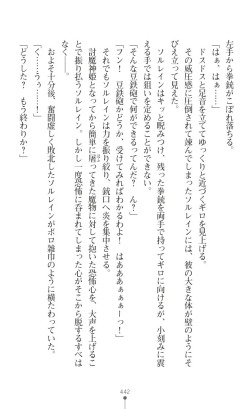 左手から拳銃がこぼれ落ちる。
「はぁ、はぁ……」
ドスドスと足音を立ててゆっくりと近づくギロを見上げる。
その威圧感に圧倒されて竦んでしまったソルレインには、彼の大きな体が壁のようにそ
びえ立って見えた。
ソルレインはキッと睨みつけ、残った拳銃を両手で持ってギロに向けるが、小刻みに震
える手では狙いを定めることができない。
「そんな豆鉄砲でどうするってんだ？　ん？」
「フン！　豆鉄砲かどうか、受けてみればわかるわよ！　はあああぁぁぁーっ！」
それでもソルレインは力を振り絞り、銃口へ炎を集中する。
討魔神姫となってから簡単に屠ってきた魔物に対して抱いた恐怖心を、大声を上げるこ
とで振り払うソルレイン。しかし一度恐怖に呑まれてしまった心がそこから脱するすべは
なく――。
およそ十分後、奮闘虚しく敗北したソルレインがボロ雑巾のように横たわっていた。
「く……うぅ……！」
「どうした？　もう終わりか？」
442